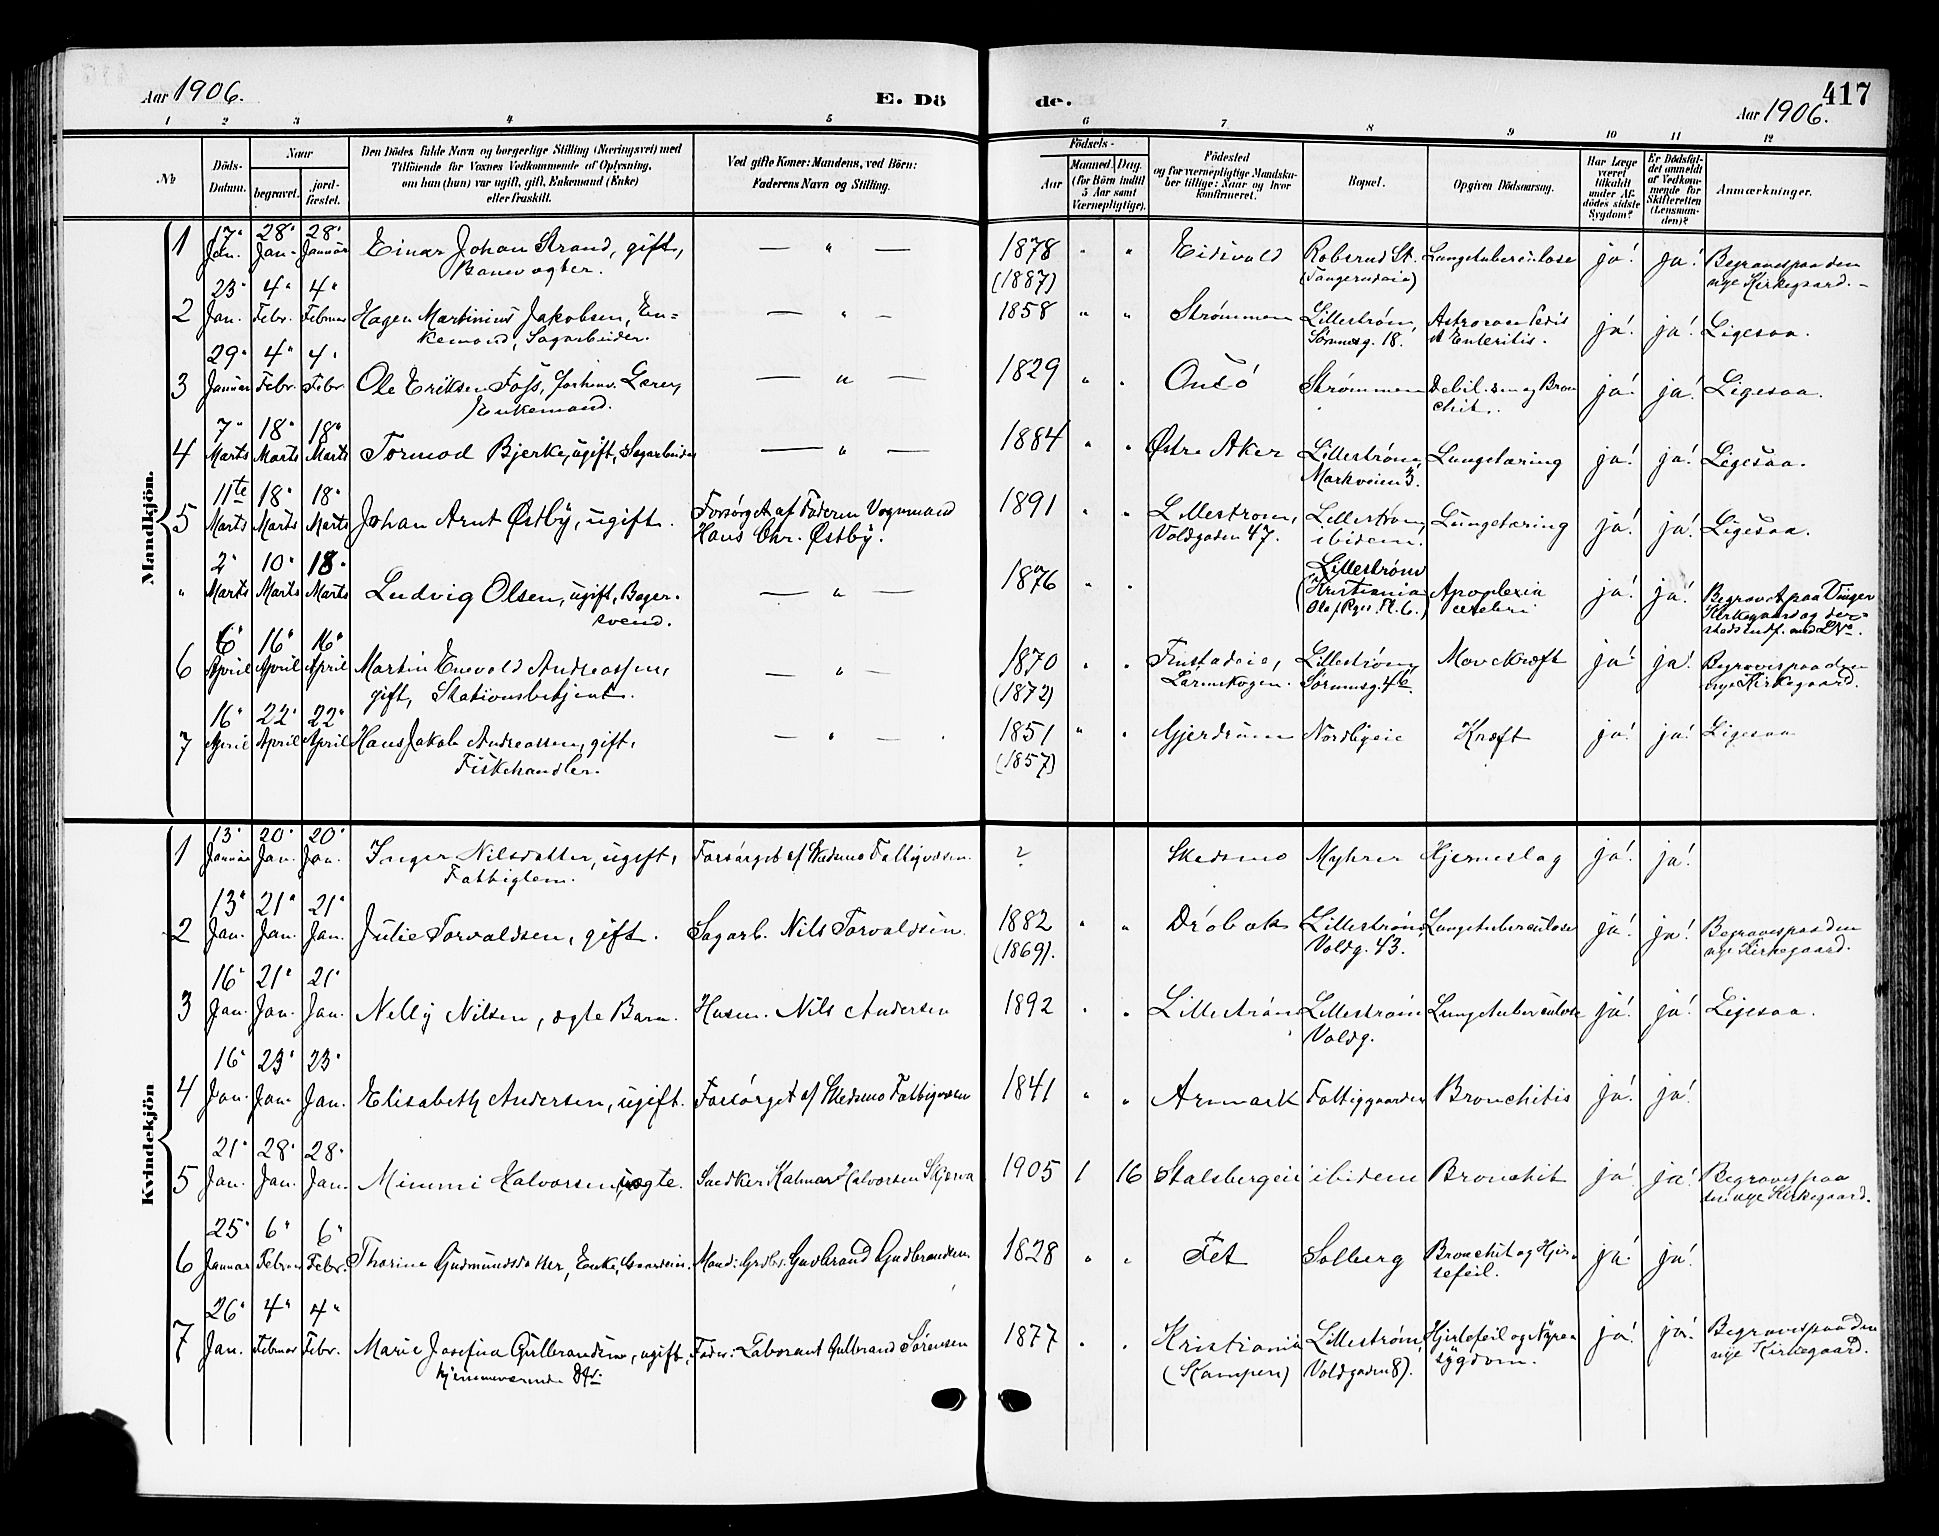 Aar 1906.
E. Dö
de.
417
Aar 1906.
1 2 3 4 5 6 7 8 9 10 11 12
No
Döds-Datum.
Naar
begravet.
jord-fæstet.
Den Dödes fulde Navn og borgerlige Stilling (Næringsvei) med
Tilföiende for Voxnes Vedkommende af Oplysning,
om han (hun) var ugift, gift, Enkemand (Enke)
eller fraskilt.
Ved gifte Koner: Mandens, ved Börn:
Faderens Navn og Stilling.
Födsels-
Aar
Maaned. Dag.
(for Börn indtil
5 Aar samt
Værnepligtige).
Födested
og for værnepligtige Mandska-
ber tillige: Naar og hvor
konfirmeret.
Bopæl.
Opgiven Dödsaarsag.
Har Læge
været
tilkaldt
under Af-
dödes sidste
Sygdom?
Er Dödsfal-
det anmeldt
af Vedkom-
mende for
Skifteretten
(Lensman-
den)?
Anmærkninger.
Mandkjön.
1 17" Jan. 28" Jan. 28" Januar Einar Johan Strand, gift, Banevogter. — " — 1878 (1887) " " Eidsvold Robsrud St. Lungetuberculose ja! ja! Begravespaa den nye Kirkegaard.
2 23" Jan. 4" Febr. 4" Februar Hagen Martinius Jakobsen, Enkemand, Sagarbeider. — " — 1858 " " Strømmen Lillestrøm, 18. Enteritis. ja! ja! Ligesaa.
3 29" Januar 4" Febr. 4" Febr. Ole Eriksen Foss, Enkemand. — " — 1829 " " Onsö Strømmen Bronchit. ja! ja! Ligesaa.
4 7" Marts 18" Marts 18" Marts Tormod Bjerke, ugift, Sagarbeider — " — 1884 " " Østre Aker Lillestrøm, Markveien 3. Lungetæring ja! ja! Ligesaa.
5 11te Marts 18" Marts 18" Marts Johan Arnt Østby, ugift. Forsørget af Faderen Vognmand Hans Chr. Østby. 1891 " " Lillestrøm, Voldgaden 47. Lillestrøm, ibidem. Lungetæring ja! ja! Ligesaa.
" 2" Marts 10" Marts 18" Marts Ludvig Olsen, ugift, Bagersvend. — " — 1876 " " Lillestrøm (Kristiania Apoplexia cerebri ja! ja! Begravet paa Vinger Kirkegaard og
6 6" April 16" April 16" April Martin Enevold Andreassen, gift, Stationsbetjent. — " — 1870 (1872) " " Lørenskogen. Lillestrøm, 46. Mavekræft ja! ja! Begravespaa den nye Kirkegaard.
7 16" April 22" April 22" April Hans Jakob Andreassen, gift, Fiskehandler. — " — 1851 (1857) " " Gjerdrum Nordbyeie Kræft ja! ja! Ligesaa
Kvindekjön
1 13" Januar 20" Jan. 20" Jan. Inger Nilsdatter, ugift, Fattiglem. Forsørget af Skedsmo Fattigvæsen. ? Skedsmo Myhrer Hjerneslag ja! ja!
2 13" Jan. 21" Jan. 21" Jan. Julie Torvaldsen, gift. Sagarb. Nils Torvaldsen 1882 (1869). " " Dröbak Lillestrøm, Voldg. 43. Lungetuberculose ja! ja! Begravespaa den nye Kirkegaard.
3 16" Jan. 21" Jan. 21" Jan. Nelly Nilsen, ægte Barn. Husm. Nils Andersen 1892 " " Lillestrøm Lillestrøm Voldg. Lungetuberculose ja! ja! Ligesaa.
4 16" Jan. 23" Jan. 23" Jan. Elisabeth Andersen, ugift. Forsørget af Skedsmo Fattigvæsen 1841 " " Aremark Fattiggaarden Bronchitis ja! ja!
5 21" Jan. 28" Jan. 28" Jan. Mimmi Halvorsen, uægte. Snedker Kalmar Halvorsen Skjerva 1905 1 16 Stalsbergeie ibidem Bronchit ja! ja! Begravespaa den nye Kirkegaard.
6 25" Januar 6" Februar 6" Febr. Thorine Gudmundsdatter, Enke, Mand: Grdbr. Gudbrand Gudbrandsen 1828 " " Fet Solberg Bronchit og Hjertefeil. ja! ja!
7 26" Jan. 4" Februar 4" Febr. Marie Josefine Gulbrandsen, ugift, hjemmeværende Dtr. Fader: Laborant Gulbrand Sørensen 1877 " " Kristiania (Kampen) Lillestrøm, Voldgaden 8). Hjertefeil og Nyresygdom. ja! ja! Begravespaa den nye Kirkegaard.